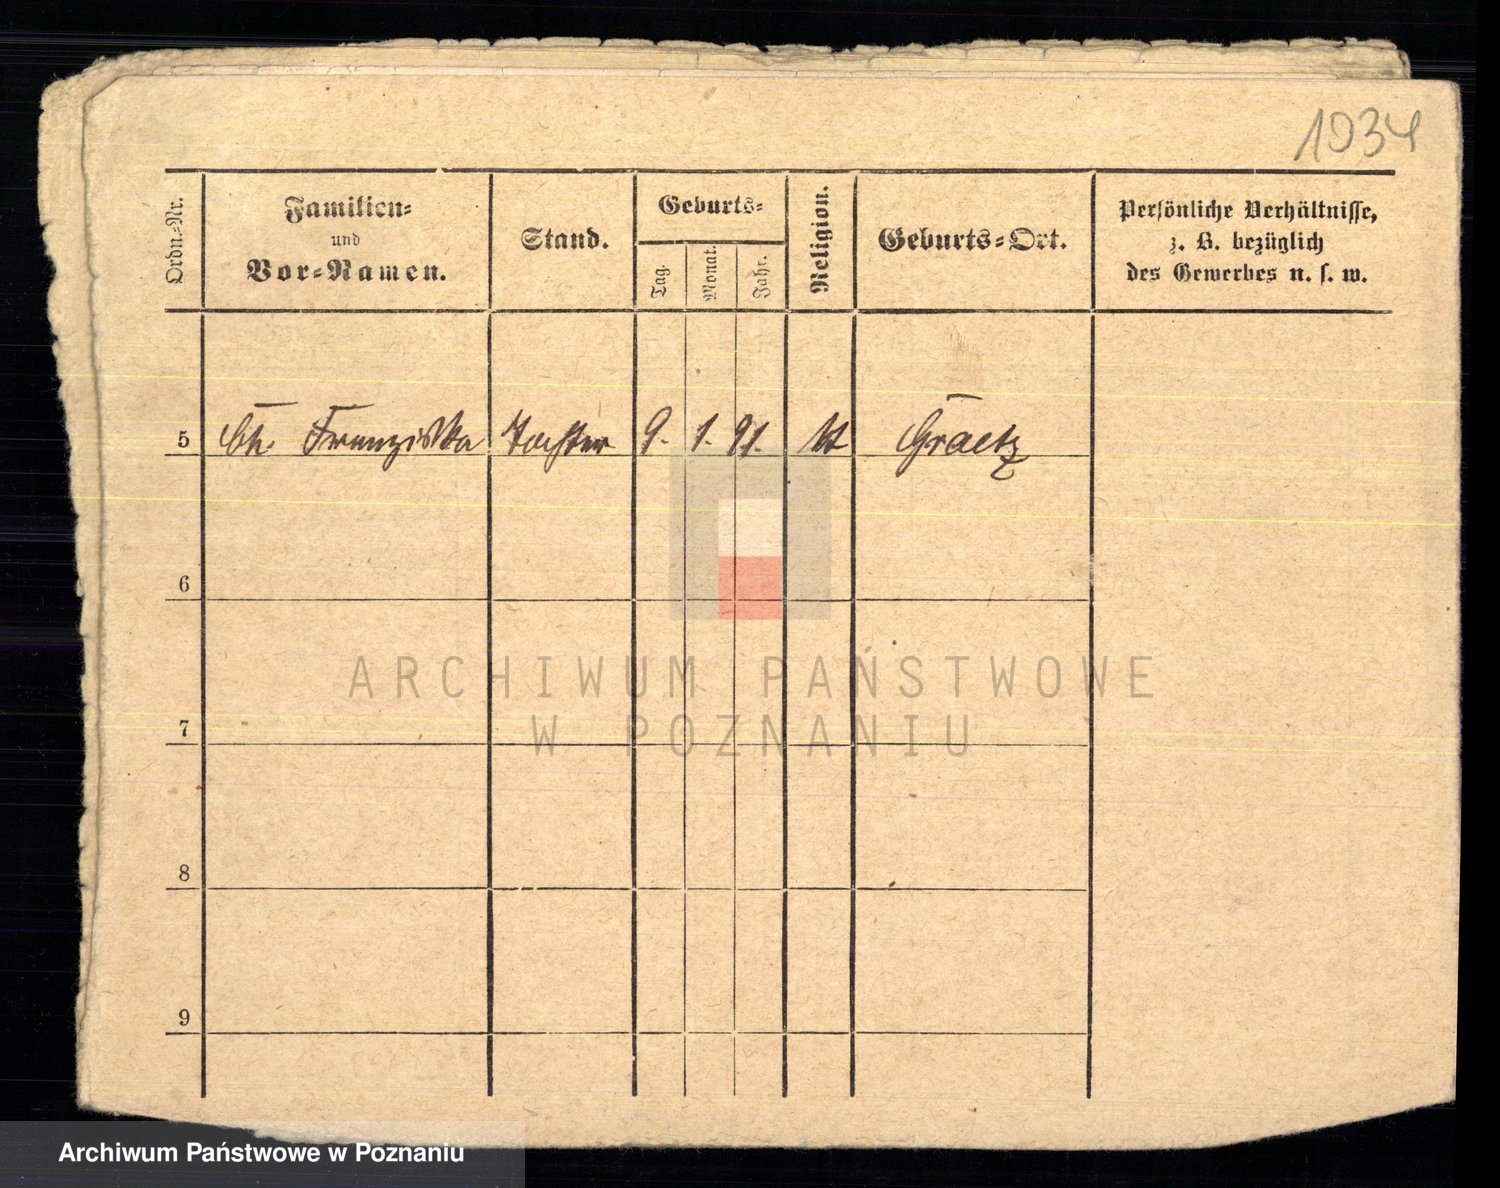 1034
Ordn.-Nr.
Familien-
und
Vor-Namen.
Stand.
Geburts-
Tag.
Monat.
Jahr.
Religion.
Geburts-Ort.
Persönliche Verhältnisse,
z. B. bezüglich
des Gewerbes u. s. w.
5 Franziska Tochter 9. 1. 91. Graetz
6
ARCHIWUM PAŃSTWOWE
W POZNANIU
7
8
9
Archiwum Państwowe w Poznaniu